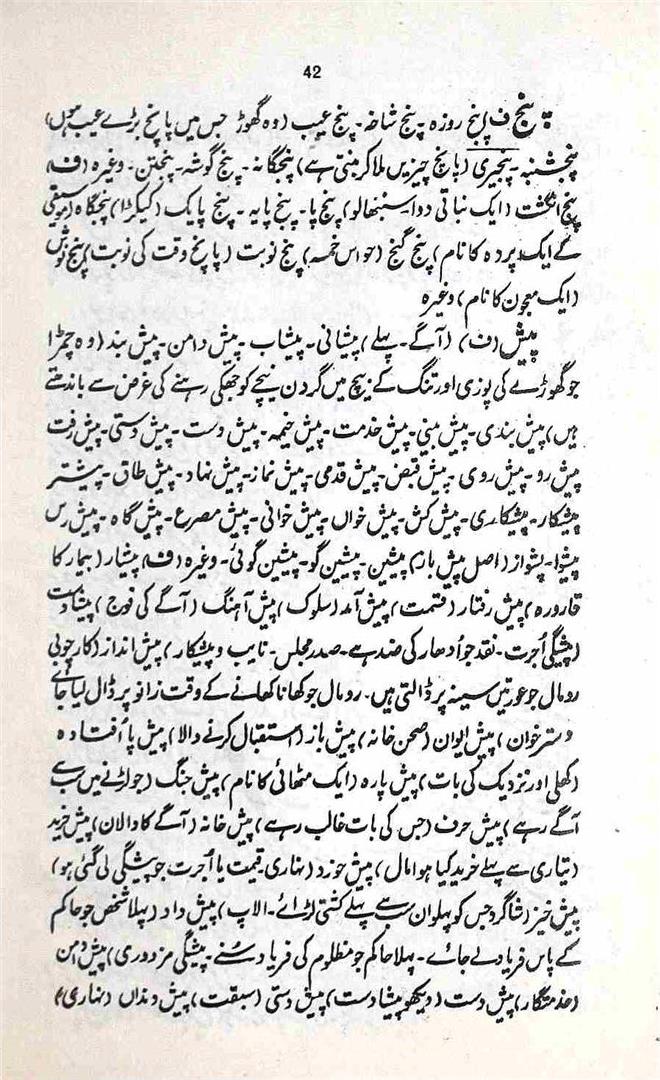 42
پنج ف پنج روزہ ۔ پنج شاخہ ۔ پنج عیب (وہ گھوڑ جس میں پانچ بڑے عیب ہوں)
پنجشنبہ ۔ پنجیری (پانچ چیزیں ملا کر بنتی ہے) پنجگانہ ۔ پنج گوشہ ۔ پنجتن ۔ وغیرہ (ف)
پنج انگشت (ایک نباتی دوا سنبھالو) پنج پا ۔ پنج پایہ ۔ پنج پایک (کیکڑا) پنجگاہ (موسیقی
کے ایک پردہ کا نام) پنج گنج (حواس خمسہ) پنج نوبت (پانچ وقت کی نوبت) پنج نوش
(ایک معجون کا نام) وغیرہ
پیش (ف) (آگے ۔ پہلے) پیشانی ۔ پیشاب ۔ پیش دامن ۔ پیش بند (وہ چمڑا
جو گھوڑے کی پوزی اور تنگ کے بیچ میں گردن نیچے کو جھکی رہنے کی غرض سے باندھتے
ہیں) پیش بندی ۔ پیش بینی ۔ پیش خدمت ۔ پیش خیمہ ۔ پیش دست ۔ پیش دستی ۔ پیش رفت
پیش رو ۔ پیش روی ۔ پیش قبض ۔ پیش قدمی ۔ پیش نماز ۔ پیش نہاد ۔ پیش طاق ۔ پیشتر
پیشکار ۔ پیشکاری ۔ پیش کش ۔ پیش خواں ۔ پیش خوانی ۔ پیش مصرع ۔ پیش گاہ ۔ پیش رس
پیشوا ۔ پشواز (اصل پیش باز) پیشین ۔ پیشین گو ۔ پیشین گوئی ۔ وغیرہ (ف) پیشیار (بیمار کا
قارورہ) پیش رفتار (قسمت) پیش آمد (سلوک) پیش آہنگ (آگے کی فوج) پیشادست
(پیشگی اُجرت ۔ نقد جو اُدھار کی ضد ہے ۔ صدر مجلس ۔ نایب و پیشکار) پیش انداز (کارچوبی
رومال جو عورتیں سینہ پر ڈالتی ہیں ۔ رومال جو کھانا کھانے کے وقت زانو پر ڈال لیا جائے
دسترخوان) پیش ایوان (صحن خانہ) پیش باز (استقبال کرنے والا) پیش پا اُفتادہ
(کھلی اور نزدیک کی بات) پیش پارہ (ایک مٹھائی کا نام) پیش جنگ (جو لڑنے میں سب سے
آگے رہے) پیش حرف (جس کی بات غالب رہے) پیش خانہ (آگے کا دالان) پیش خرید
(تیاری سے پہلے خرید کیا ہوا مال) پیش خورد (نہاری ۔ قیمت یا اُجرت جو پیشگی لی گئی ہو)
پیش خیز (شاگرد جس کو پہلوان سب سے پہلے کشتی لڑائے ۔ الاپ) پیش داد (پہلا شخص جو حاکم
کے پاس فریاد لے جائے ۔ پہلا حاکم جو مظلوم کی فریاد سُنے ۔ پیشگی مزدوری) پیش دامن
(خدمتگار) پیش دست (دیکھو پیشادست) پیش دستی (سبقت) پیش دنداں (نہاری)